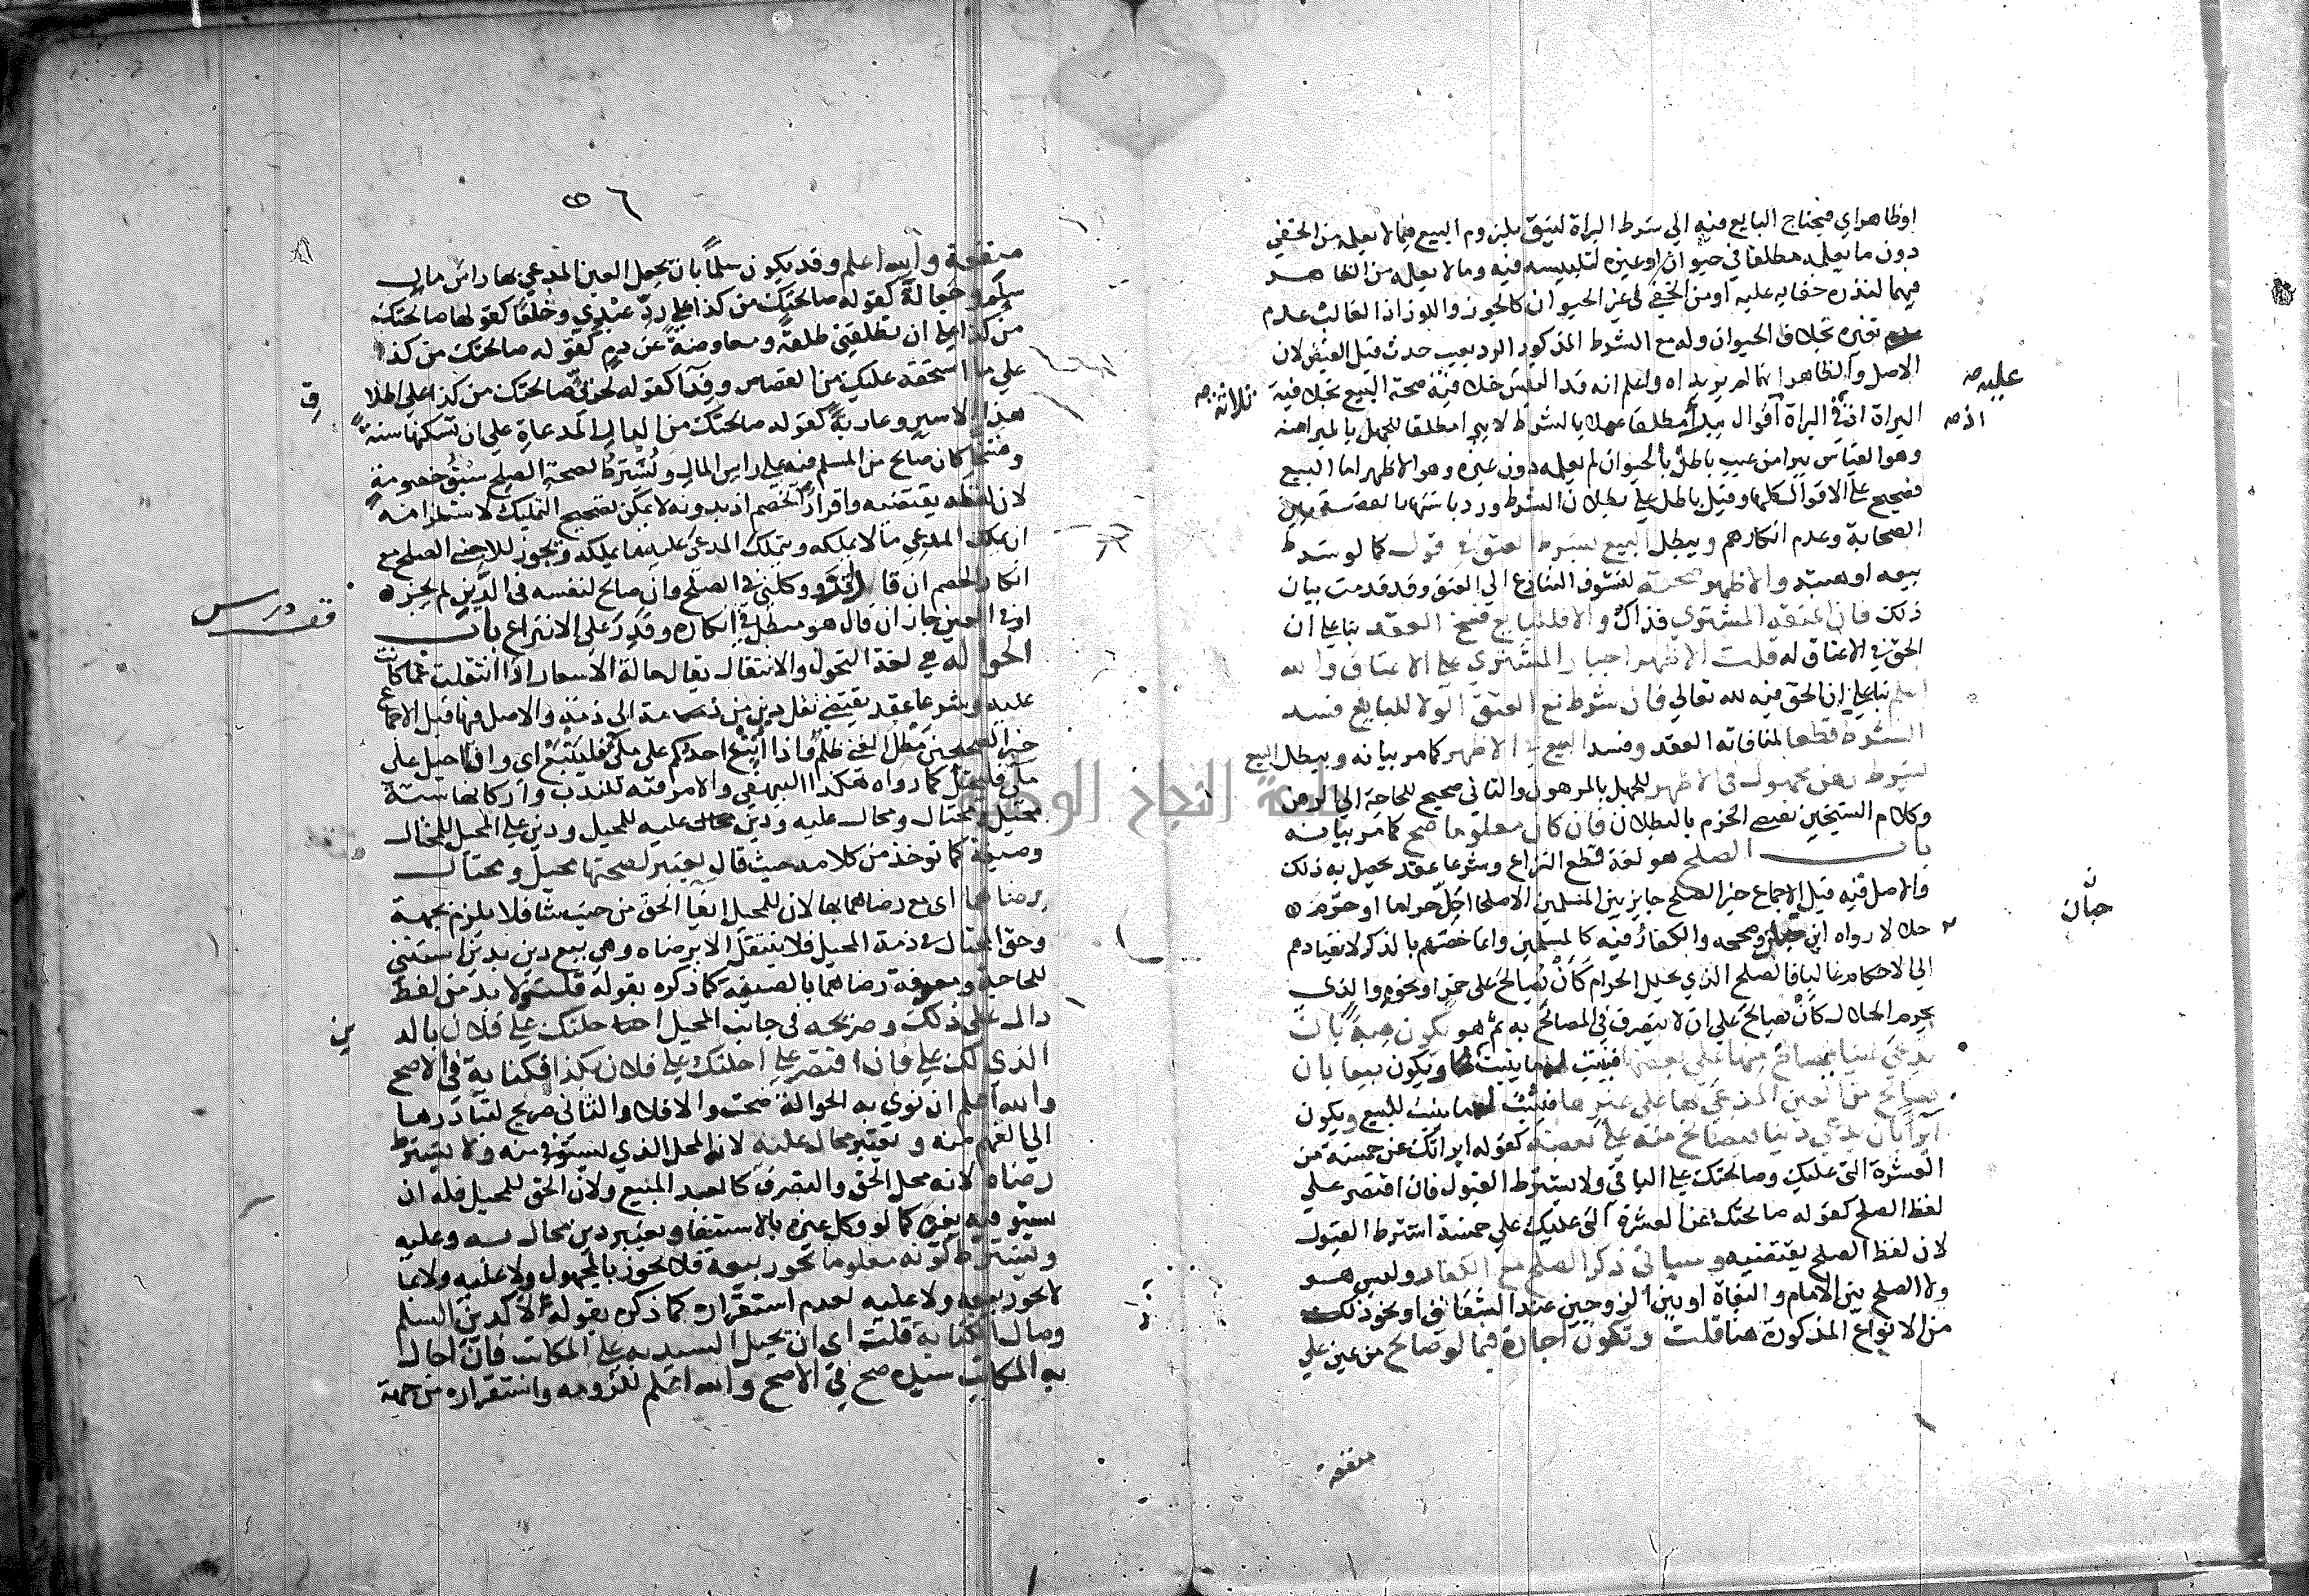 او ظاهر اي فيحتاج البايع فيه الي شرط البراة ليثق بلزوم البيع فيما لا يعلمه من الخفي
دون ما يعلمه مطلقا في حيوان او غيره لتلبيسه فيه وما لا يعلمه من الظاهر
فيهما لندرة خفايه عليه او من الخفي في غير الحيوان كالجوز واللوز اذ الغالب عدم
تغيره بخلاف الحيوان وله مع الشرط المذكور الرد بعيب حدث قبل القبض لان
الاصل والظاهر انهما لم يريداه واعلم انه قد البيع بخلافية
عليه صح
ثلاثة صح
البراة اذ في البراة اقوال يبرأ مطلقا عملا بالشرط لا يبرا مطلقا للجهل بالمبرا منه
اذ صح
وهو القياس يبرا من عيب باطن بالحيوان لم يعلمه دون غيره وهو الاظهر اما البيع
فصحيح علي الاقوال كلها وقيل باطل علي بطلان الشرط ورد باشتهار القصة بين
الصحابة وعدم انكارهم ويبطل البيع بشرط العتق في قول كما لو شرط
بيعه او هبته والاظهر صحته لتشوف الشارع الي العتق وقد قدمت بيان
ذلك فان اعتقه المشتري فذاك والا فللبايع فسخ العقد بنا علي ان
الحق في الاعتاق له قلت الاظهر اجبار المشتري علي الاعتاق والله
اعلم بنا علي ان الحق فيه لله تعالي فان شرط مع العتق الولا للبايع فسد
الشرط قطعا لمنافاته العقد وفسد البيع في الاظهر كما مر بيانه ويبطل البيع
بشرط رهن مجهول في الاظهر للجهل بالمرهون والثاني صحيح للحاجة الي الرهن
وكلام الشيخين يقتضي الجزم بالبطلان فان كان معلوما صح كما مر بيانه
باب الصلح هو لغة قطع النزاع وشرعا عقد يحصل به ذلك
والاصل فيه قبل الاجماع خبر الصلح جايز بين المسلمين الا صلحا احل حراما او حرم
حلالا رواه ابن حبان وصححه والكفار فيه كالمسلمين وانما خصهم بالذكر لانقيادهم
حبان
الي الاحكام غالبا فالصلح الذي يحلل الحرام كأن يصالح علي خمر او نحوه والذي
يحرم الحلال كأن يصالح علي ان لا يتصرف في المصالح به ثم هو يكون هبة بان
يدعي عينا فيصالح منها علي بعضها فيثبت لها ما يثبت لها ويكون بيعا بان
يصالح من العين المدعي بها علي غيرها فيثبت لها ما يثبت للبيع ويكون
ابرآ بان يدعي دينا فيصالح منه علي بعضه كقوله ابراتك عن خمسة من
العشرة التي عليك وصالحتك علي الباقي ولا يشترط القبول فان اقتصر علي
لفظ الصلح كقوله صالحتك عن العشرة التي عليك علي خمسة اشترط القبول
لان لفظ الصلح يقتضيه وسياتي ذكر الصلح مع الكفار وليس هو
ولا الصلح بين الامام والبغاة او بين الزوجين عند الشقاق او نحو ذلك
من الانواع المذكورة هنا قلت وتكون اجارة فيما لو صالح من عين علي
منفعة
٥٦
منفعة والله اعلم وقد يكون سلما بان يجعل العين المدعي بها راس مال
سلم وجعالة كقوله صالحتك من كذا علي رد عبدي وخلعا كقولها صالحتك
من كذا علي ان تطلقني طلقة ومعاوضة عن دم كقوله صالحتك من كذا
علي ما استحقه عليك من القصاص وفدآ كقوله لحربي صالحتك من كذا علي اطلا
ق
هذا الاسير وعارية كقوله صالحتك من الدار المدعاة علي ان تسكنها سنة
وفسخا كان صالح من المسلم فيه علي راس المال ويشترط لصحة الصلح سبق خصومة
لان لفظه يقتضيه واقرار الخصم اذ بدونه لا يمكن تصحيح التمليك لاستلزامه
ان يملك المدعي ما لا يملكه ويتملك المدعي عليه ما يملكه ويجوز للاجنبي الصلح مع
انكار الخصم ان قال اقر ووكلني في الصلح وان صالح لنفسه في الدين لم يجز
او في العين جاز ان قال هو مبطل في انكاره وقدر علي الانتزاع باب
درس
الحوالة هي لغة التحول والانتقال يقال حالة الاسعار اذا انتقلت عما كانت
عليه وشرعا عقد يقتضي نقل دين من ذمة الي ذمة والاصل فيها قبل الاجماع
خبر الصحيحين مطل الغني ظلم فاذا اتبع احدكم على ملئ فليتبع اي وان احيل علي
ملئ فليحتل كما رواه هكذا البيهقي والامر فيه للندب واركانها ستة
محيل ومحتال ومحال عليه ودين محال عليه للمحيل ودين علي المحيل للمحتال
وصيغة كما توخذ من كلامه حيث قال يعتبر لصحتها محيل ومحتال
برضاهما اي مع رضاهما بها لان للمحيل ايفآ الحق من حيث شا فلا يلزم بجهة
وحق المحتال في ذمة المحيل فلا ينتقل الا برضاه وهي بيع دين بدين استثني
للحاجة ومعرفة رضاهما بالصيغة كما ذكره بقوله قلت ولا بد من لفظ
دال علي ذلك وصريحه في جانب المحيل احلتك علي فلان بالد
ين
الذي لك علي فان اقتصر علي احلتك علي فلان بكذا فكناية في الاصح
والله اعلم ان نوي به الحوالة صحت والا فلا والثاني صريح لتبادرها
الي الفهم منه ويعتبر محال عليه لانه المحل الذي يستوفي منه ولا يشترط
رضاه لانه محل الحق والتصرف كالعبد المبيع ولان الحق للمحيل فله ان
يستوفيه بغيره كما لو وكل غيره بالاستيفا ويعتبر دين محال به وعليه
ويشترط كونه معلوما يجوز بيعه فلا يجوز بالمجهول ولا عليه ولا بما
لا يجوز بيعه ولا عليه لعدم استقراره كما ذكره بقوله لا كدين السلم
ومال الكتابة قلت اي ان يحيل السيد به علي المكاتب فان احال
به المكاتب سيده صح في الاصح والله اعلم للزومه واستقراره من جهة
جامعة النجاح الوطنية